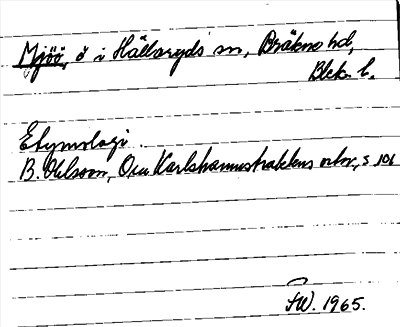 Mjöö, ö i Hällaryds sn, Bräkne hd,
Blek. l.
Etymologi.
B. Ohlsson, Om Karlshamnstraktens ortn., s. 101
FW. 1965.